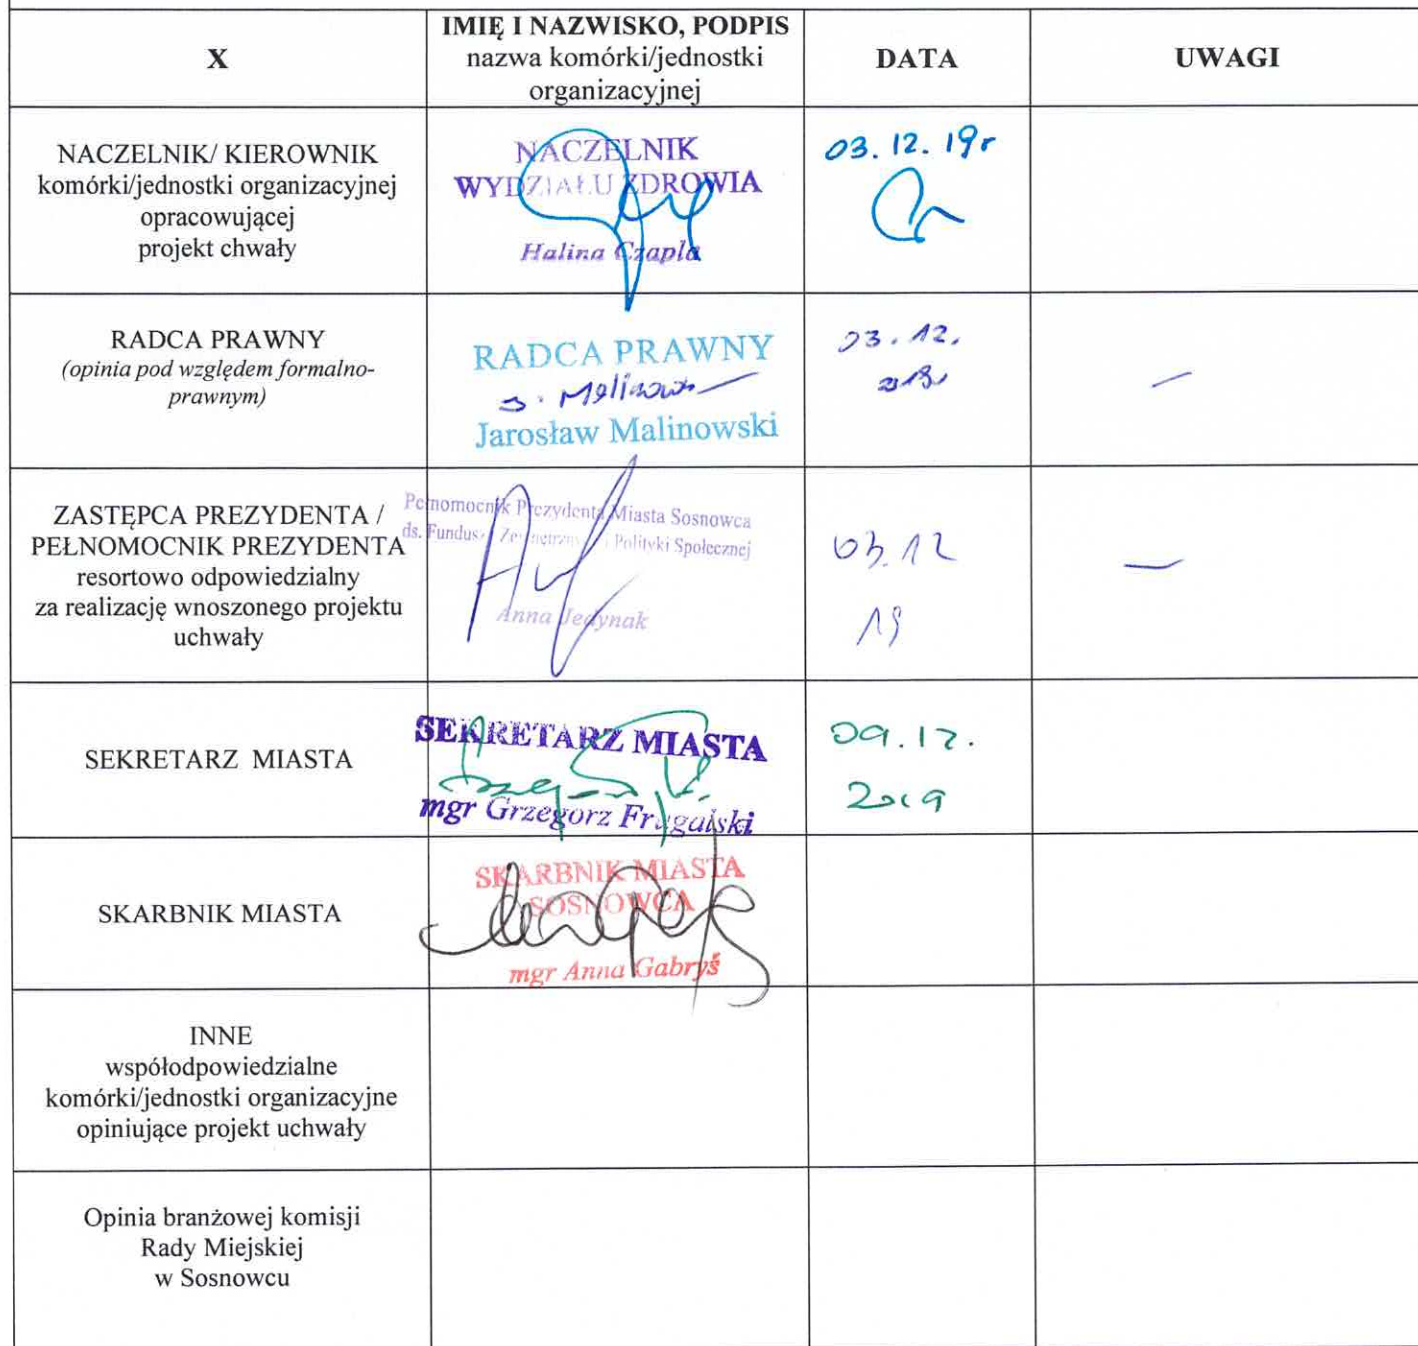 X
IMIĘ I NAZWISKO, PODPIS
nazwa komórki/jednostki
organizacyjnej
DATA
UWAGI
NACZELNIK/ KIEROWNIK
komórki/jednostki organizacyjnej
opracowującej
projekt chwały
NACZELNIK
WYDZIAŁU ZDROWIA
Halina Czapla
03.12.19r
RADCA PRAWNY
(opinia pod względem formalno-
prawnym)
RADCA PRAWNY
Jarosław Malinowski
03.12.
2019
ZASTĘPCA PREZYDENTA /
PEŁNOMOCNIK PREZYDENTA
resortowo odpowiedzialny
za realizację wnoszonego projektu
uchwały
Pełnomocnik Prezydenta Miasta Sosnowca
ds. Funduszy Zewnętrznych i Polityki Społecznej
Anna Jedynak
03.12
19
SEKRETARZ MIASTA
SEKRETARZ MIASTA
mgr Grzegorz
09.12.
2019
SKARBNIK MIASTA
SKARBNIK MIASTA
SOSNOWCA
mgr Anna Gabryś
INNE
współodpowiedzialne
komórki/jednostki organizacyjne
opiniujące projekt uchwały
Opinia branżowej komisji
Rady Miejskiej
w Sosnowcu